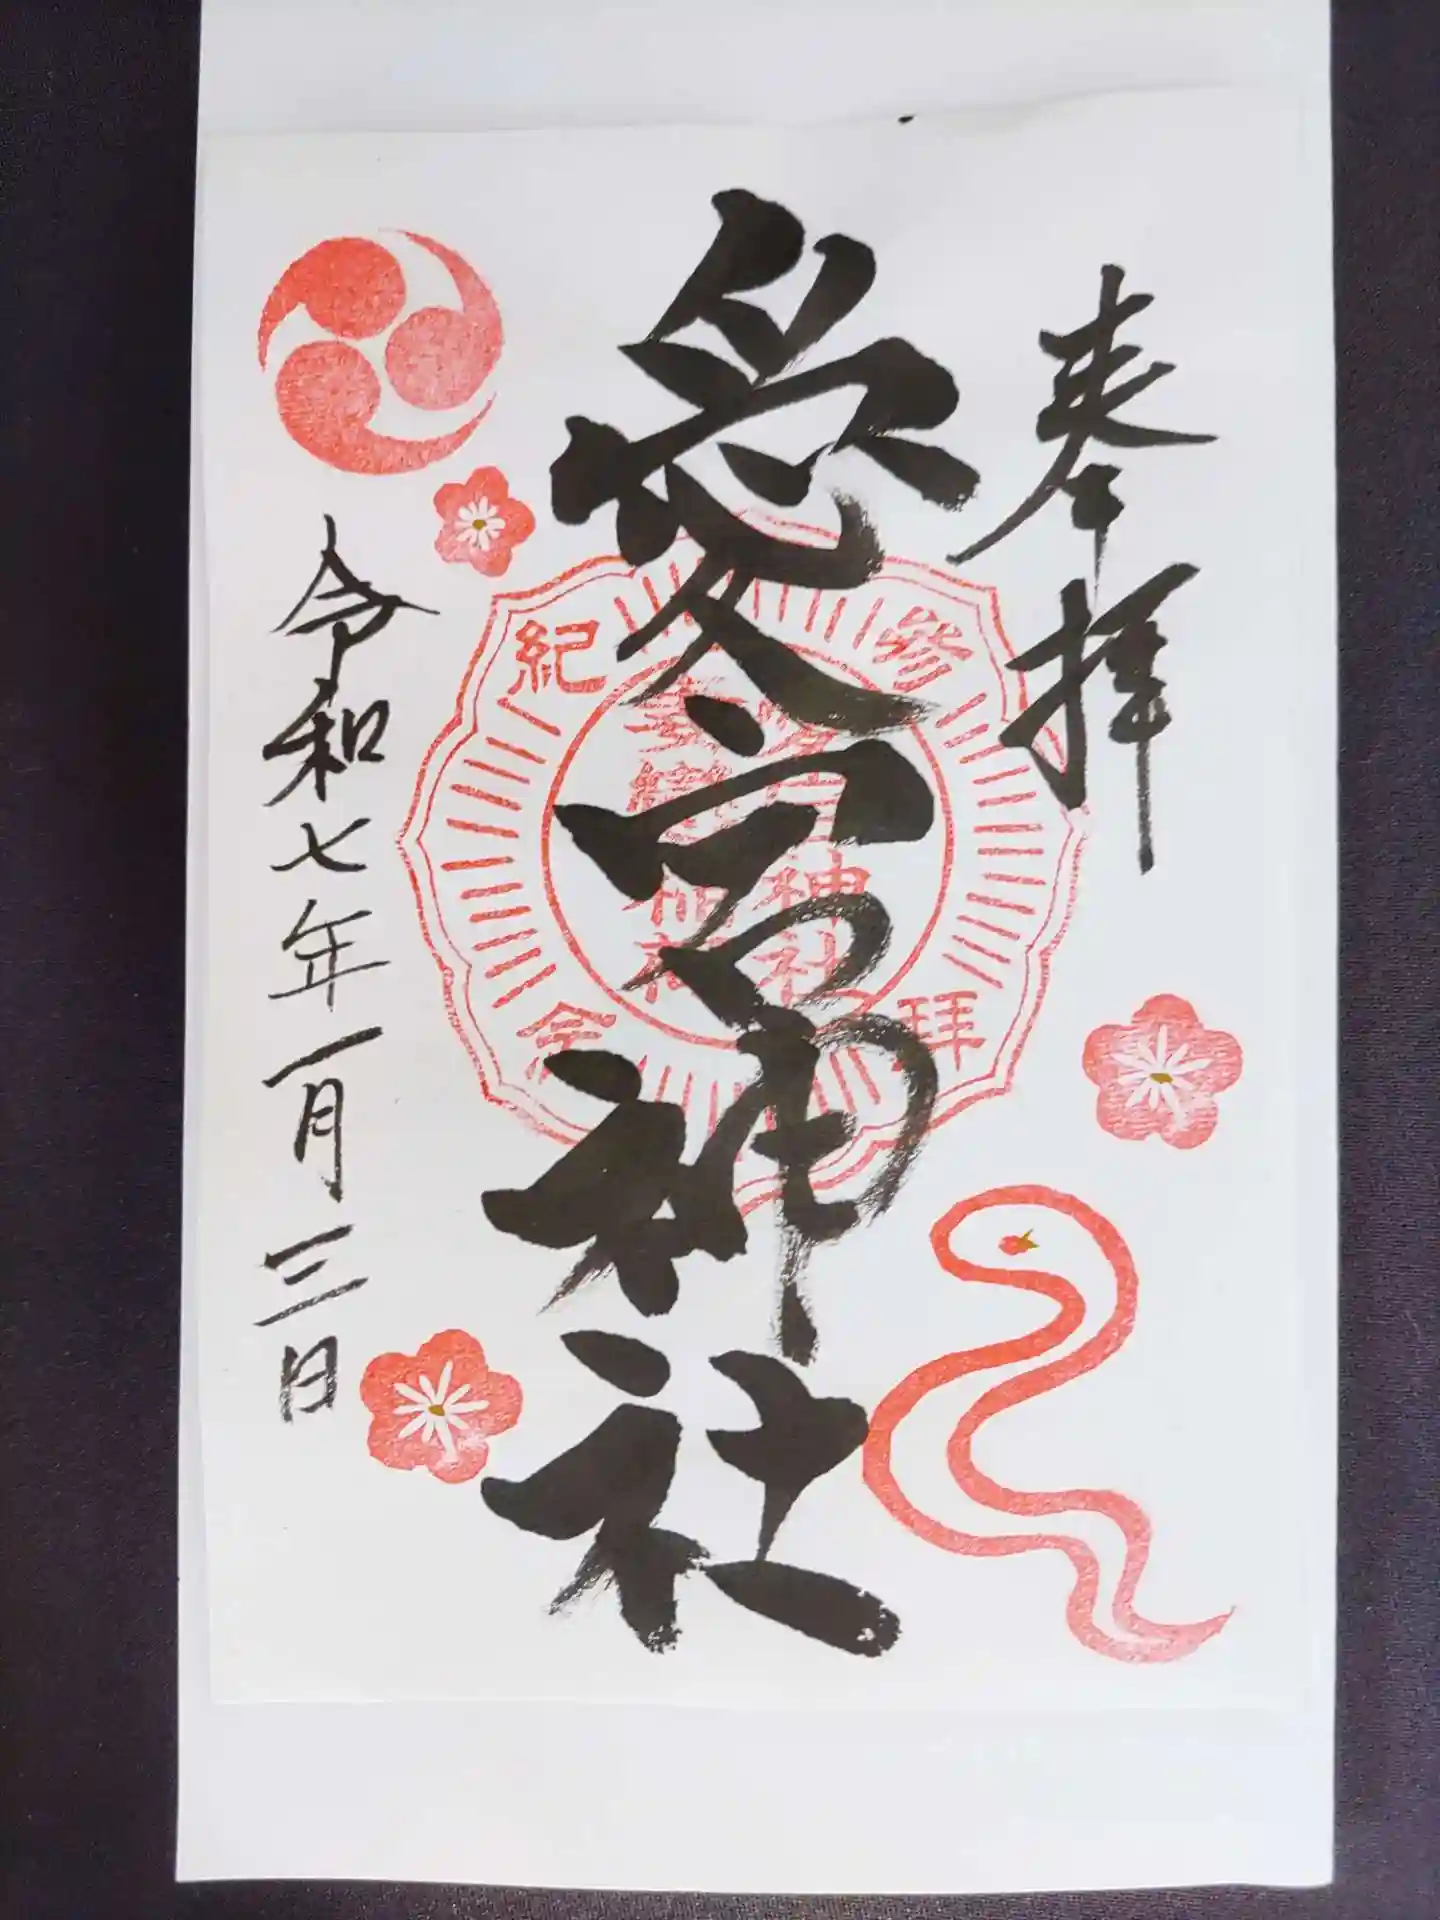 奉拝
愛宕神社
令和七年一月三日
参拝
紀念
神社